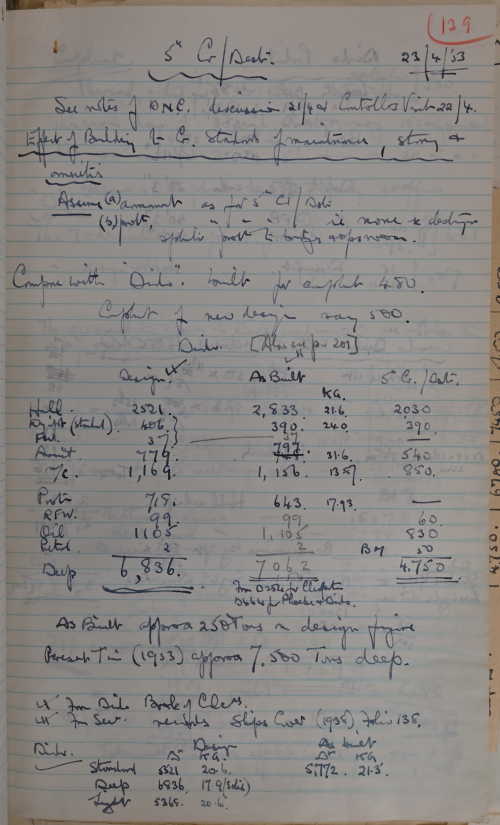 139
5" Cr/Destr. 23/4/53
See notes of DNC. discussion 21/4 & Controllers Visit 22/4.
Effect of Building to Cr. Standards of maintenance, strong &
amenities
Assume (a) armament as for 5" Cr/Destr.
(b) prot. " " " ie none &
prot to bridge
Compare with "Dido". built for complement 480.
Complement of new design say 500.
Dido. [Also see p. 201]
Design. As Built 5" Cr./Destr.
KG.
Hull 2521. 2,833 21.6 2030
Eqpt (stand). 406. 390. 24.0 390.
37 37 —
Armt 779. 797 31.6 540
M/C. 1,169. 1,156 13.57 850.
Protn 718. 643. 17.93 —
RFW. 99. 99 60.
Oil 1105 1,105 830
Petrol 2 2 BM 50
Deep 6,836. 7062 4,750
From D254 for Cleopatra
D664 for Phoebe & Dido.
As Built approx 250 Tons on design figure
Present Time (1953) approx 7,500 Tons deep.
From Dido Book of Calcs.
records Ships Cover (1938) Folio 135.
Dido. Design As built
KG. KG
Standard 5521 20.6. 5,772. 21.3.
Deep 6836. 17.9 (solid)
Light 5368. 20.6.